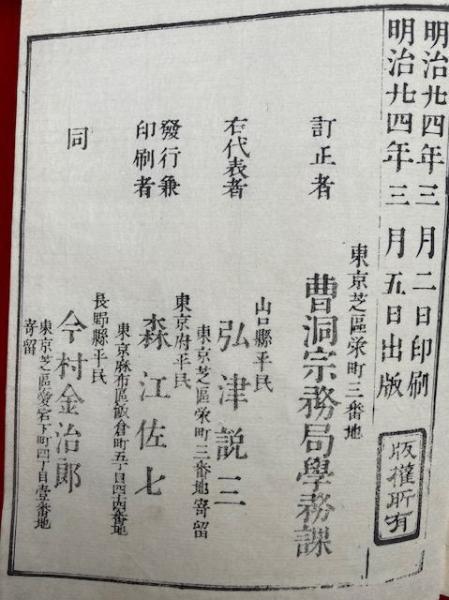 明治廿四年三月二日印刷
明治廿四年三月五日出版
版權所有
東京芝區栄町三番地
訂正者
曹洞宗務局學務課
山口縣平民
右代表者
弘津説三
東京芝區栄町三番地寄留
東京府平民
發行兼
印刷者
森江佐七
東京麻布區飯倉町五丁目四十四番地
長野縣平民
同
今村金治郎
東京芝區愛宕下町四丁目壹番地
寄留